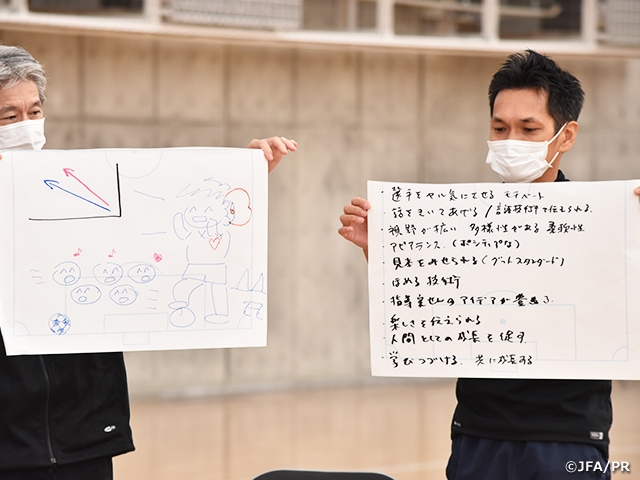 ・選手をヤル気にさせる モチベート
・話をきいてあげる / 言語技術で伝えられる.
・視野が広い 多様性がある 柔軟性
・アピアランス. (ポジティブな)
・見本をみせられる (グットスタンダード)
・ほめる 技術
・指導案せんのアイデアが豊富.
・楽しさを伝えられる
・人間としての成長を促す
・学びつづける. 共に成長する
©JFA/PR